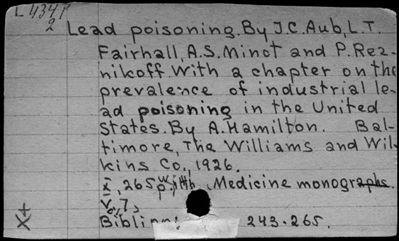 L434P
2 Lead poisoning. By J.C. Aub, L.T.
Fairhall, A.S. Minot and P. Rez-
nikoff. With a chapter on the
prevalence of industrial le-
ad poisoning in the United
States. By A. Hamilton. Bal-
timore, The Williams and Wil-
kins Co., 1926.
x, 265p. Medicine monographs.
v. 7.
X+ 243-265.